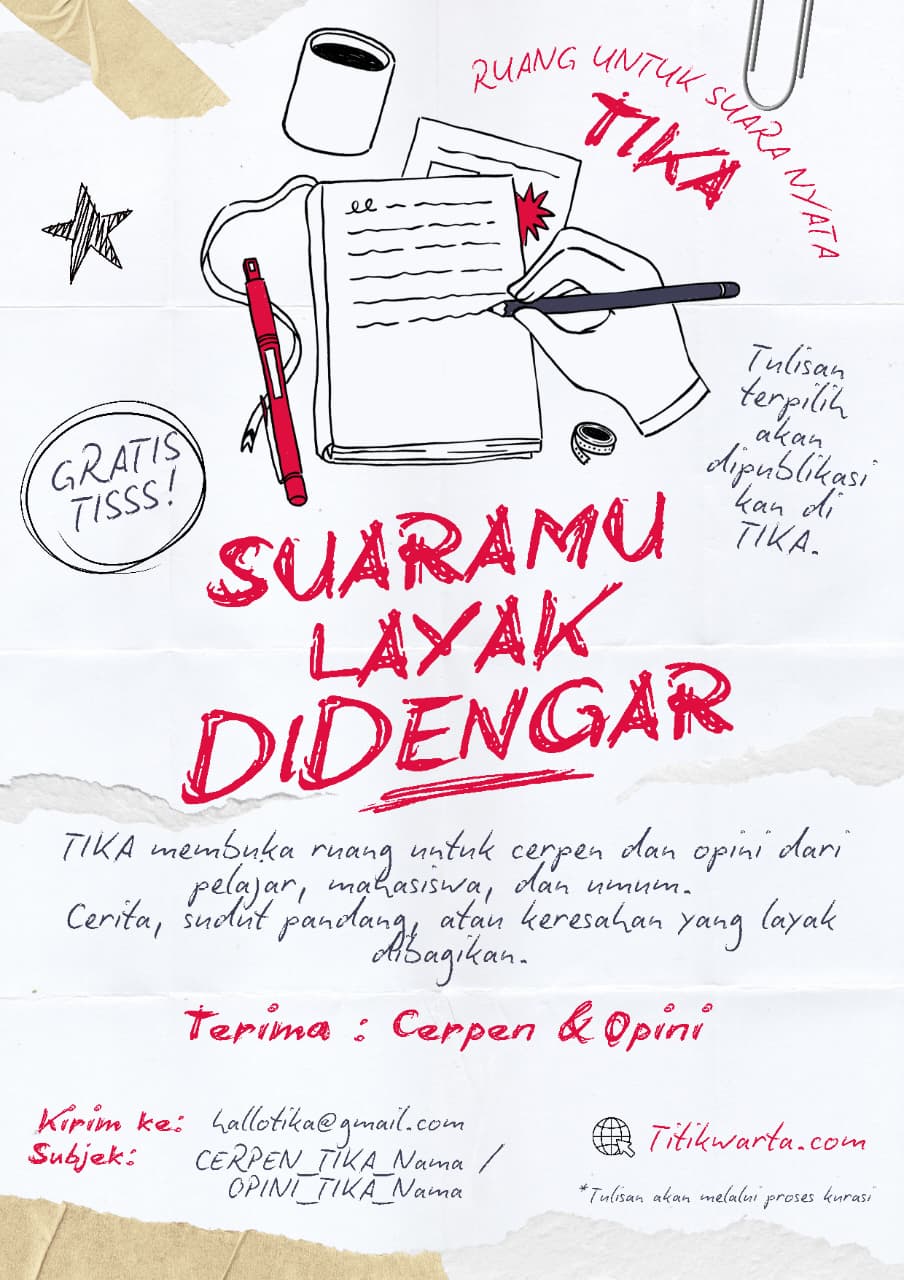 RUANG UNTUK SUARA NYATA
TIKA
GRATIS
TISSS!
Tulisan
terpilih
akan
dipublikasi
kan di
TIKA.
SUARAMU
LAYAK
DIDENGAR
TIKA membuka ruang untuk cerpen dan opini dari
pelajar, mahasiswa, dan umum.
Cerita, sudut pandang, atau keresahan yang layak
dibagikan.
Terima : Cerpen & Opini
Kirim ke: hallotika@gmail.com
Subjek: CERPEN_TIKA_Nama /
OPINI_TIKA_Nama
Titikwarta.com
*Tulisan akan melalui proses kurasi